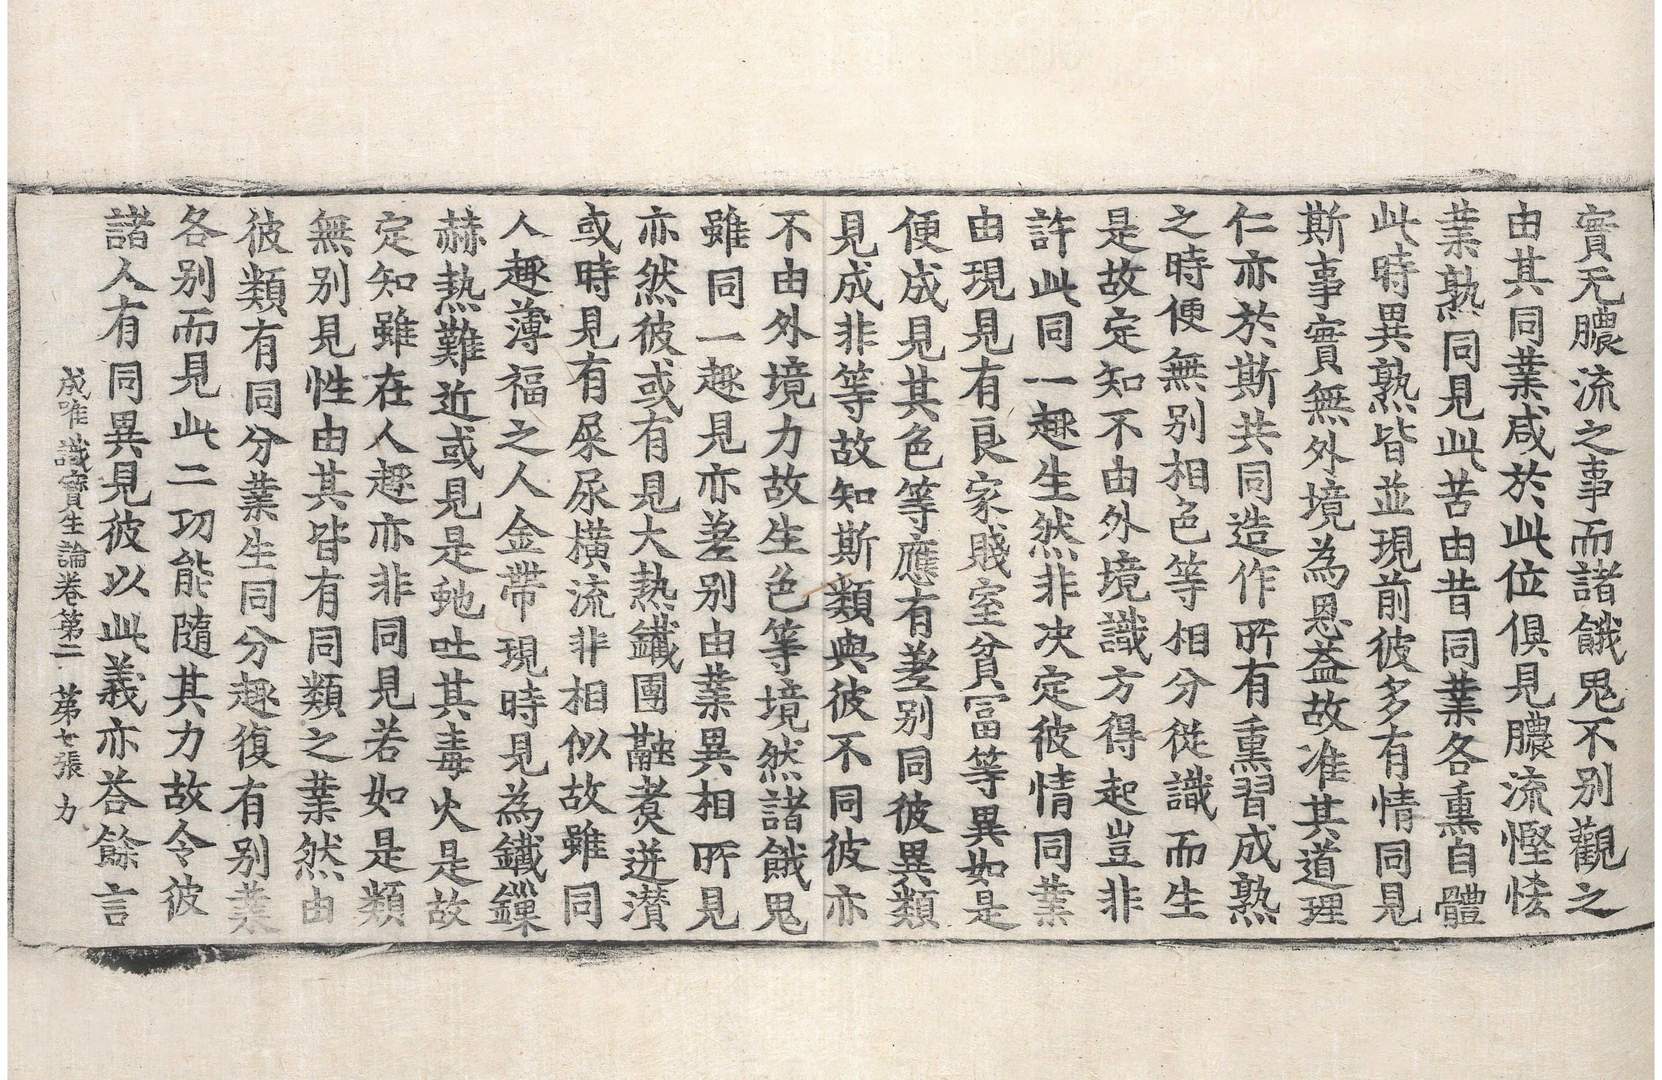 實无膿流之事而諸餓鬼不別觀之
由其同業咸於此位俱見膿流慳悋
業熟同見此苦由昔同業各熏自體
此時異熟皆並現前彼多有情同見
斯事實無外境為恩益故准其道理
仁亦於斯共同造作所有熏習成熟
之時便無別相色等相分從識而生
是故定知不由外境識方得起豈非
許此同一趣生然非决定彼情同業
由現見有良家賤室貧冨等異如是
便成見其色等應有差別同彼異類
見成非等故知斯類與彼不同彼亦
不由外境力故生色等境然諸餓鬼
雖同一趣見亦差別由業異相所見
亦然彼或有見大熱鐵團融煑迸濽
或時見有屎尿橫流非相似故雖同
人趣薄福之人金帶現時見為鐵鏁
赫熱難近或見是虵吐其毒火是故
定知雖在人趣亦非同見若如是類
無別見性由其皆有同類之業然由
彼類有同分業生同分趣復有別業
各別而見此二功能隨其力故令彼
諸人有同異見彼以此義亦荅餘言
成唯識寶生論卷第二 第七張 力